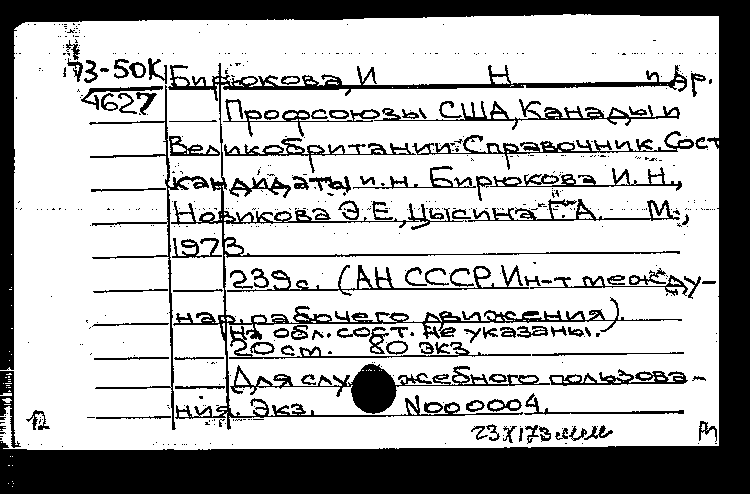 73-50К Бирюкова, И Н и др.
4627 Профсоюзы США, Канады и
Великобритании. Справочник. Сост
кандидаты и.н. Бирюкова И.Н.,
Новикова Э.Е., Цысина Г.А. М.,
1973.
239с. (АН СССР. Ин-т между-
нар. рабочего движения).
На обл. сост. не указаны.
20 см. 80 экз.
Для служебного пользова-
ния. Экз. N000004.
12 23 X 173